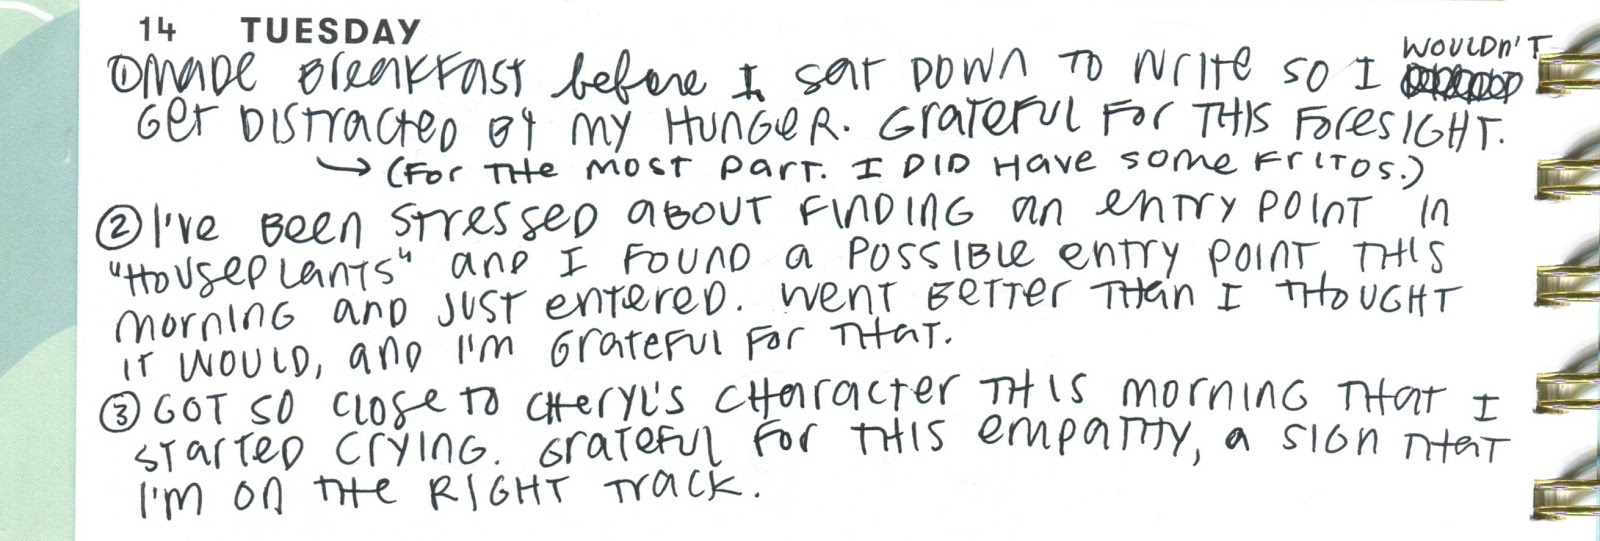 14 TUESDAY
① MADE BREAKFAST before I SAT DOWN TO WRITE SO I WOULDN'T
GET DISTRACTED BY MY HUNGER. GRATEFUL FOR THIS FORESIGHT.
→ (FOR THE MOST PART. I DID HAVE SOME FRITOS.)
② I'VE BEEN STRESSED ABOUT FINDING AN ENTRY POINT IN
"HOUSEPLANTS" AND I FOUND A POSSIBLE ENTRY POINT THIS
MORNING AND JUST ENTERED. WENT BETTER THAN I THOUGHT
IT WOULD, AND I'M GRATEFUL FOR THAT.
③ GOT SO CLOSE TO CHERYL'S CHARACTER THIS MORNING THAT I
STARTED CRYING. GRATEFUL FOR THIS EMPATHY, A SIGN THAT
I'M ON THE RIGHT TRACK.